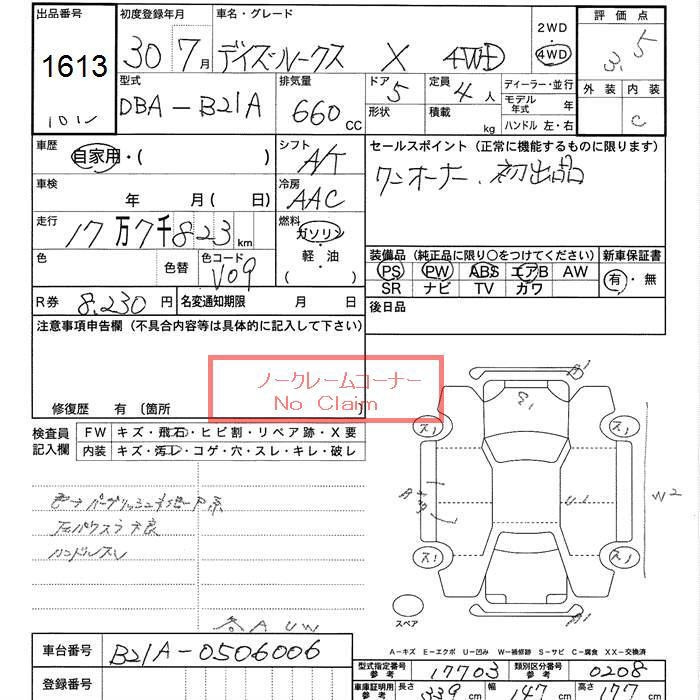 出品番号 初度登録年月 車名・グレード 2WD 評価点
1613 30年7月 デイズルークス X 4WD ・ 4WD 3.5
101ン
型式 排気量 ドア 定員 ディーラー・並行 外装 内装
DBA-B21A 660CC 5 4人 モデル年式 年 C
形状 積載 kg ハンドル 左・右
車歴 シフト セールスポイント (正常に機能するものに限ります)
自家用・( ) A/T ワンオーナー、初出品
車検 年 月( 日) 冷房 AAC
走行 燃料
17万7千823km ガソリン
軽・油
( )
装備品 (純正品に限り○をつけてください) 新車保証書
色 色替 色コード PS PW ABS エアB AW 有・無
V09 SR ナビ TV カワ
R券 8,230円 名変通知期限 月 日 後日品
注意事項申告欄(不具合内容等は具体的に記入して下さい)
ノークレームコーナー
No Claim
修復歴 有〔箇所 〕
検査員記入欄 FW キズ・飛石・ヒビ割・リペア跡・X要
内装 キズ・汚レ・コゲ・穴・スレ・キレ・破レ
ハンドルスレ
A1
ス1 ス1
W2
ス1 ス1
スペア
A1
A UW
A-キズ E-エクボ U-凹み W-補修跡 S-サビ C-腐食 XX-交換済
車台番号 B21A-0506006
型式指定番号 参考 17703 類別区分番号 参考 0208
登録番号
車庫証明用 参考 長さ 339cm 幅 147cm 高さ 177cm